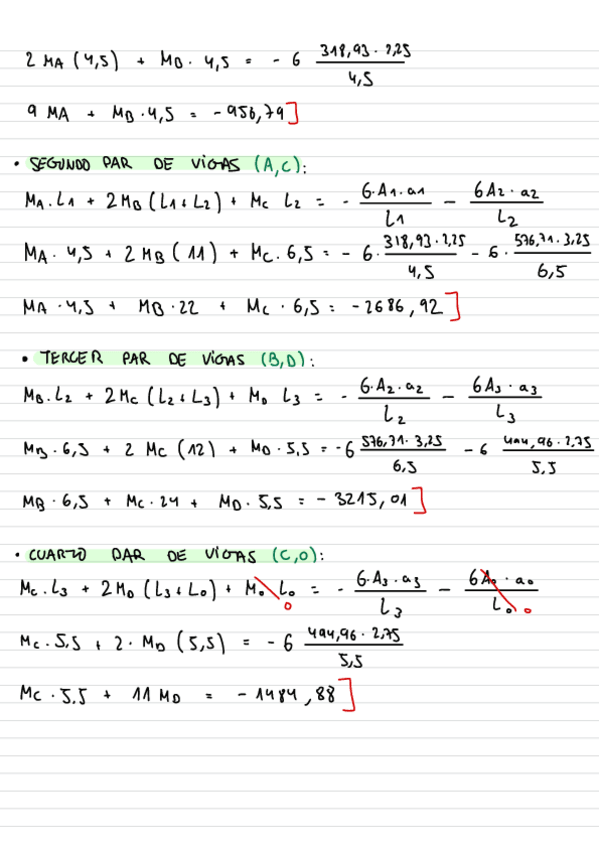 2 MA (4,5) + MB · 4,5 = - 6 318,93 · 2,25 / 4,5
9 MA + MB · 4,5 = - 956,79]
• SEGUNDO PAR DE VIGAS (A,C):
MA · L1 + 2 MB (L1 + L2) + MC L2 = - 6·A1·a1 / L1 - 6A2·a2 / L2
MA · 4,5 + 2 MB (11) + MC · 6,5 = - 6 · 318,93 · 2,25 / 4,5 - 6 · 576,71 · 3,25 / 6,5
MA · 4,5 + MB · 22 + MC · 6,5 = - 2686,92]
• TERCER PAR DE VIGAS (B,D):
MB · L2 + 2 MC (L2 + L3) + MD L3 = - 6·A2·a2 / L2 - 6A3·a3 / L3
MB · 6,5 + 2 MC (12) + MD · 5,5 = - 6 576,71 · 3,25 / 6,5 - 6 494,96 · 2,75 / 5,5
MB · 6,5 + MC · 24 + MD · 5,5 = - 3215,01]
• CUARTO PAR DE VIGAS (C,0):
MC · L3 + 2 MD (L3 + L0) + M0 L0 = - 6·A3·a3 / L3 - 6A0·a0 / L0
0 0
MC · 5,5 + 2 · MD (5,5) = - 6 494,96 · 2,75 / 5,5
MC · 5,5 + 11 MD = - 1484,88]